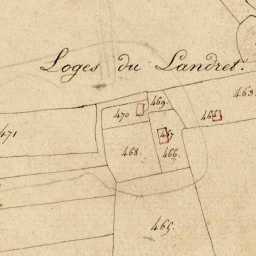 Loges du Landret.
463
469
470
464
471
467
468
466
465